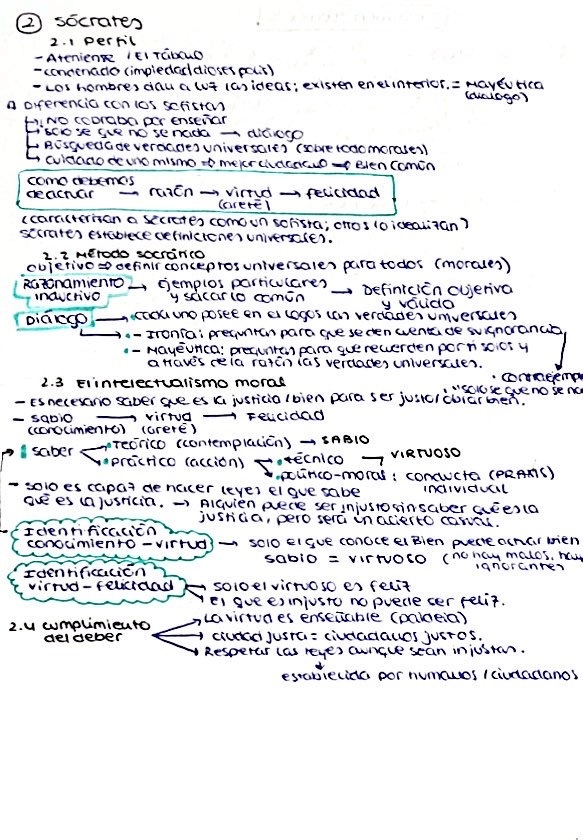 ② SÓCRATES
2.1 Perfil
- Ateniense / El Tábano
- condenado (impiedad/dioses polis)
- Los hombres dan a luz las ideas; existen en el interior. = Mayéutica
(diálogo)
Diferencia con los sofistas
No cobraba por enseñar
Solo se que no se nada → diálogo
Búsqueda de verdades universales (sobre todo morales)
Cuidado de uno mismo → mejor ciudadano → Bien Común
como debemos
de actuar → razón → virtud → felicidad
(areté)
(caracterizan a Sócrates como un sofista; otros lo idealizan)
Sócrates establece definiciones universales.
2.2 Método socrático
Objetivo ⇒ definir conceptos universales para todos (morales)
Razonamiento inductivo → Ejemplos particulares y sacar lo común → Definición objetiva y válida
Diálogo → cada uno posee en el logos las verdades universales
- Ironía: preguntas para que se den cuenta de su ignorancia
- Mayéutica: preguntas para que recuerden por ti solos y
a través de la razón las verdades universales.
2.3 El intelectualismo moral
• contraejemp
"solo se que no se na
- Es necesario saber que es la justicia / bien para ser justo / obrar bien.
- sabio → virtud → Felicidad
(conocimiento) (areté)
saber
• Teórico (contemplación) → SABIO
• Práctico (acción)
• técnico → VIRTUOSO
• político-moral: conducta (PRAXIS)
individual
- Solo es capaz de hacer leyes el que sabe
qué es la justicia. → Alguien puede ser injusto sin saber qué es la
justicia, pero será un acierto casual.
Identificación
conocimiento - virtud → solo el que conoce el Bien puede actuar bien
sabio = virtuoso (no hay malos, hay
ignorantes
Identificación
virtud - felicidad → solo el virtuoso es feliz
El que es injusto no puede ser feliz.
2.4 cumplimiento
del deber
→ La virtud es enseñable (paideia)
→ ciudad justa = ciudadanos justos.
→ Respetar las leyes aunque sean injustas.
establecida por humanos / ciudadanos